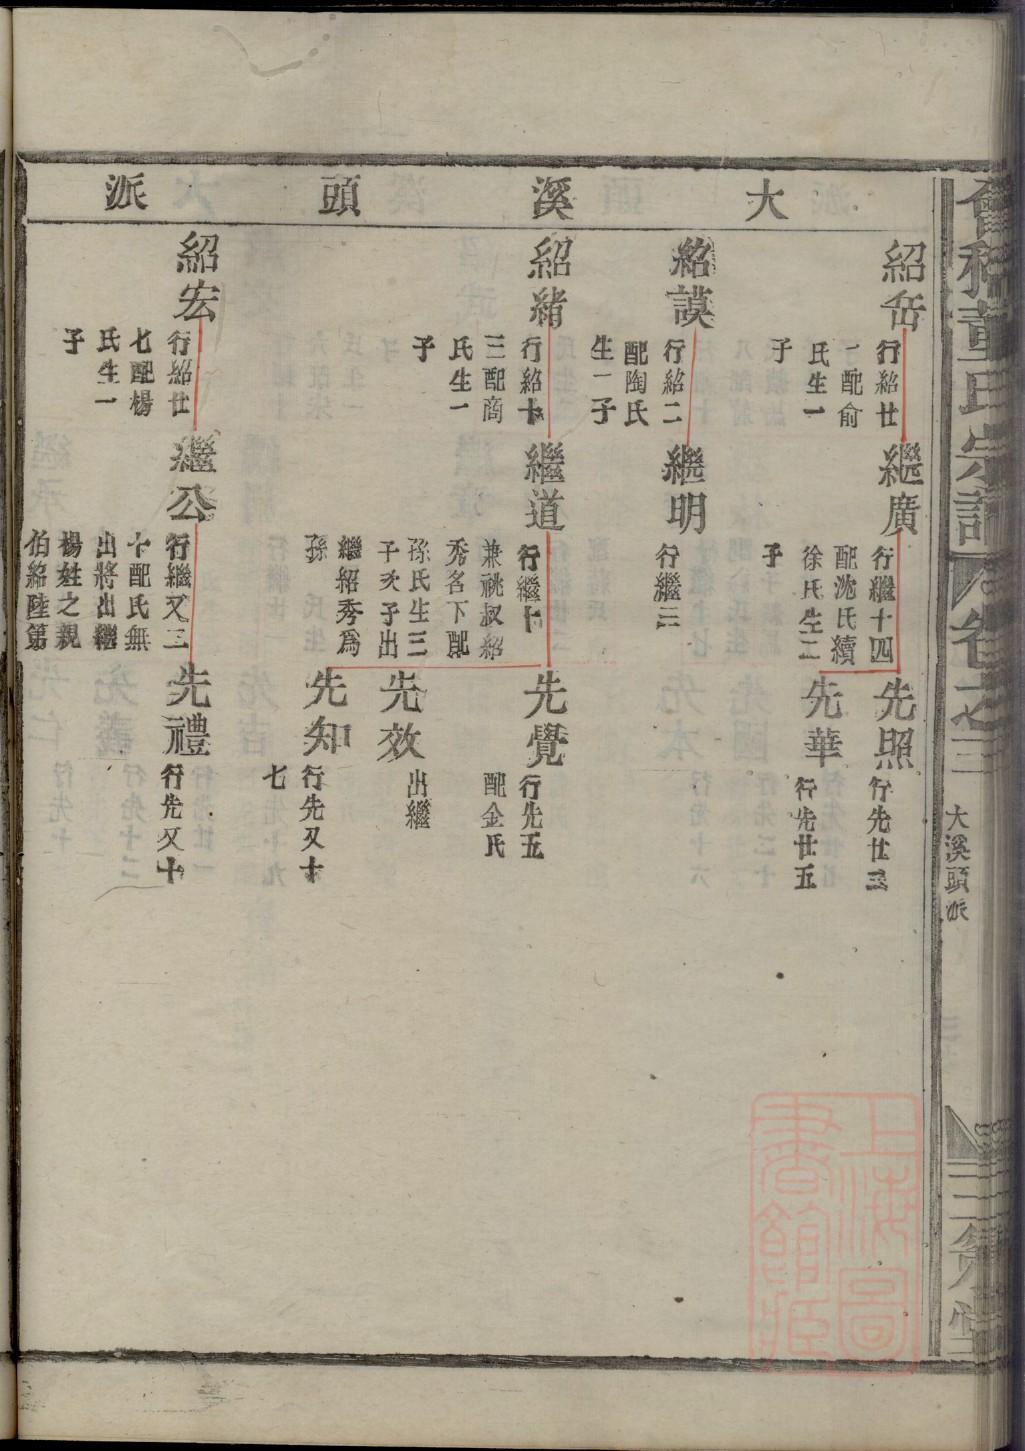 會稽董氏宗譜
卷之三
大溪頭派
三策堂
大溪頭派
紹岳
行紹廿
一配俞
氏生一
子
繼廣
行繼十四
配沈氏續
徐氏生二
子
先照
行先廿三
先華
行先廿五
紹謨
行紹二
配陶氏
生一子
繼明
行繼三
紹緒
行紹十
三配商
氏生一
子
繼道
行繼十
兼祧叔紹
秀名下配
孫氏生三
子次子出
繼紹秀爲
孫
先覺
行先五
配金氏
先效
出繼
先知
行先又十
七
紹宏
行紹廿
七配楊
氏生一
子
繼公
行繼又三
十配氏無
出將出繼
楊姓之親
伯紹陸第
先禮
行先又十
上海圖書館藏